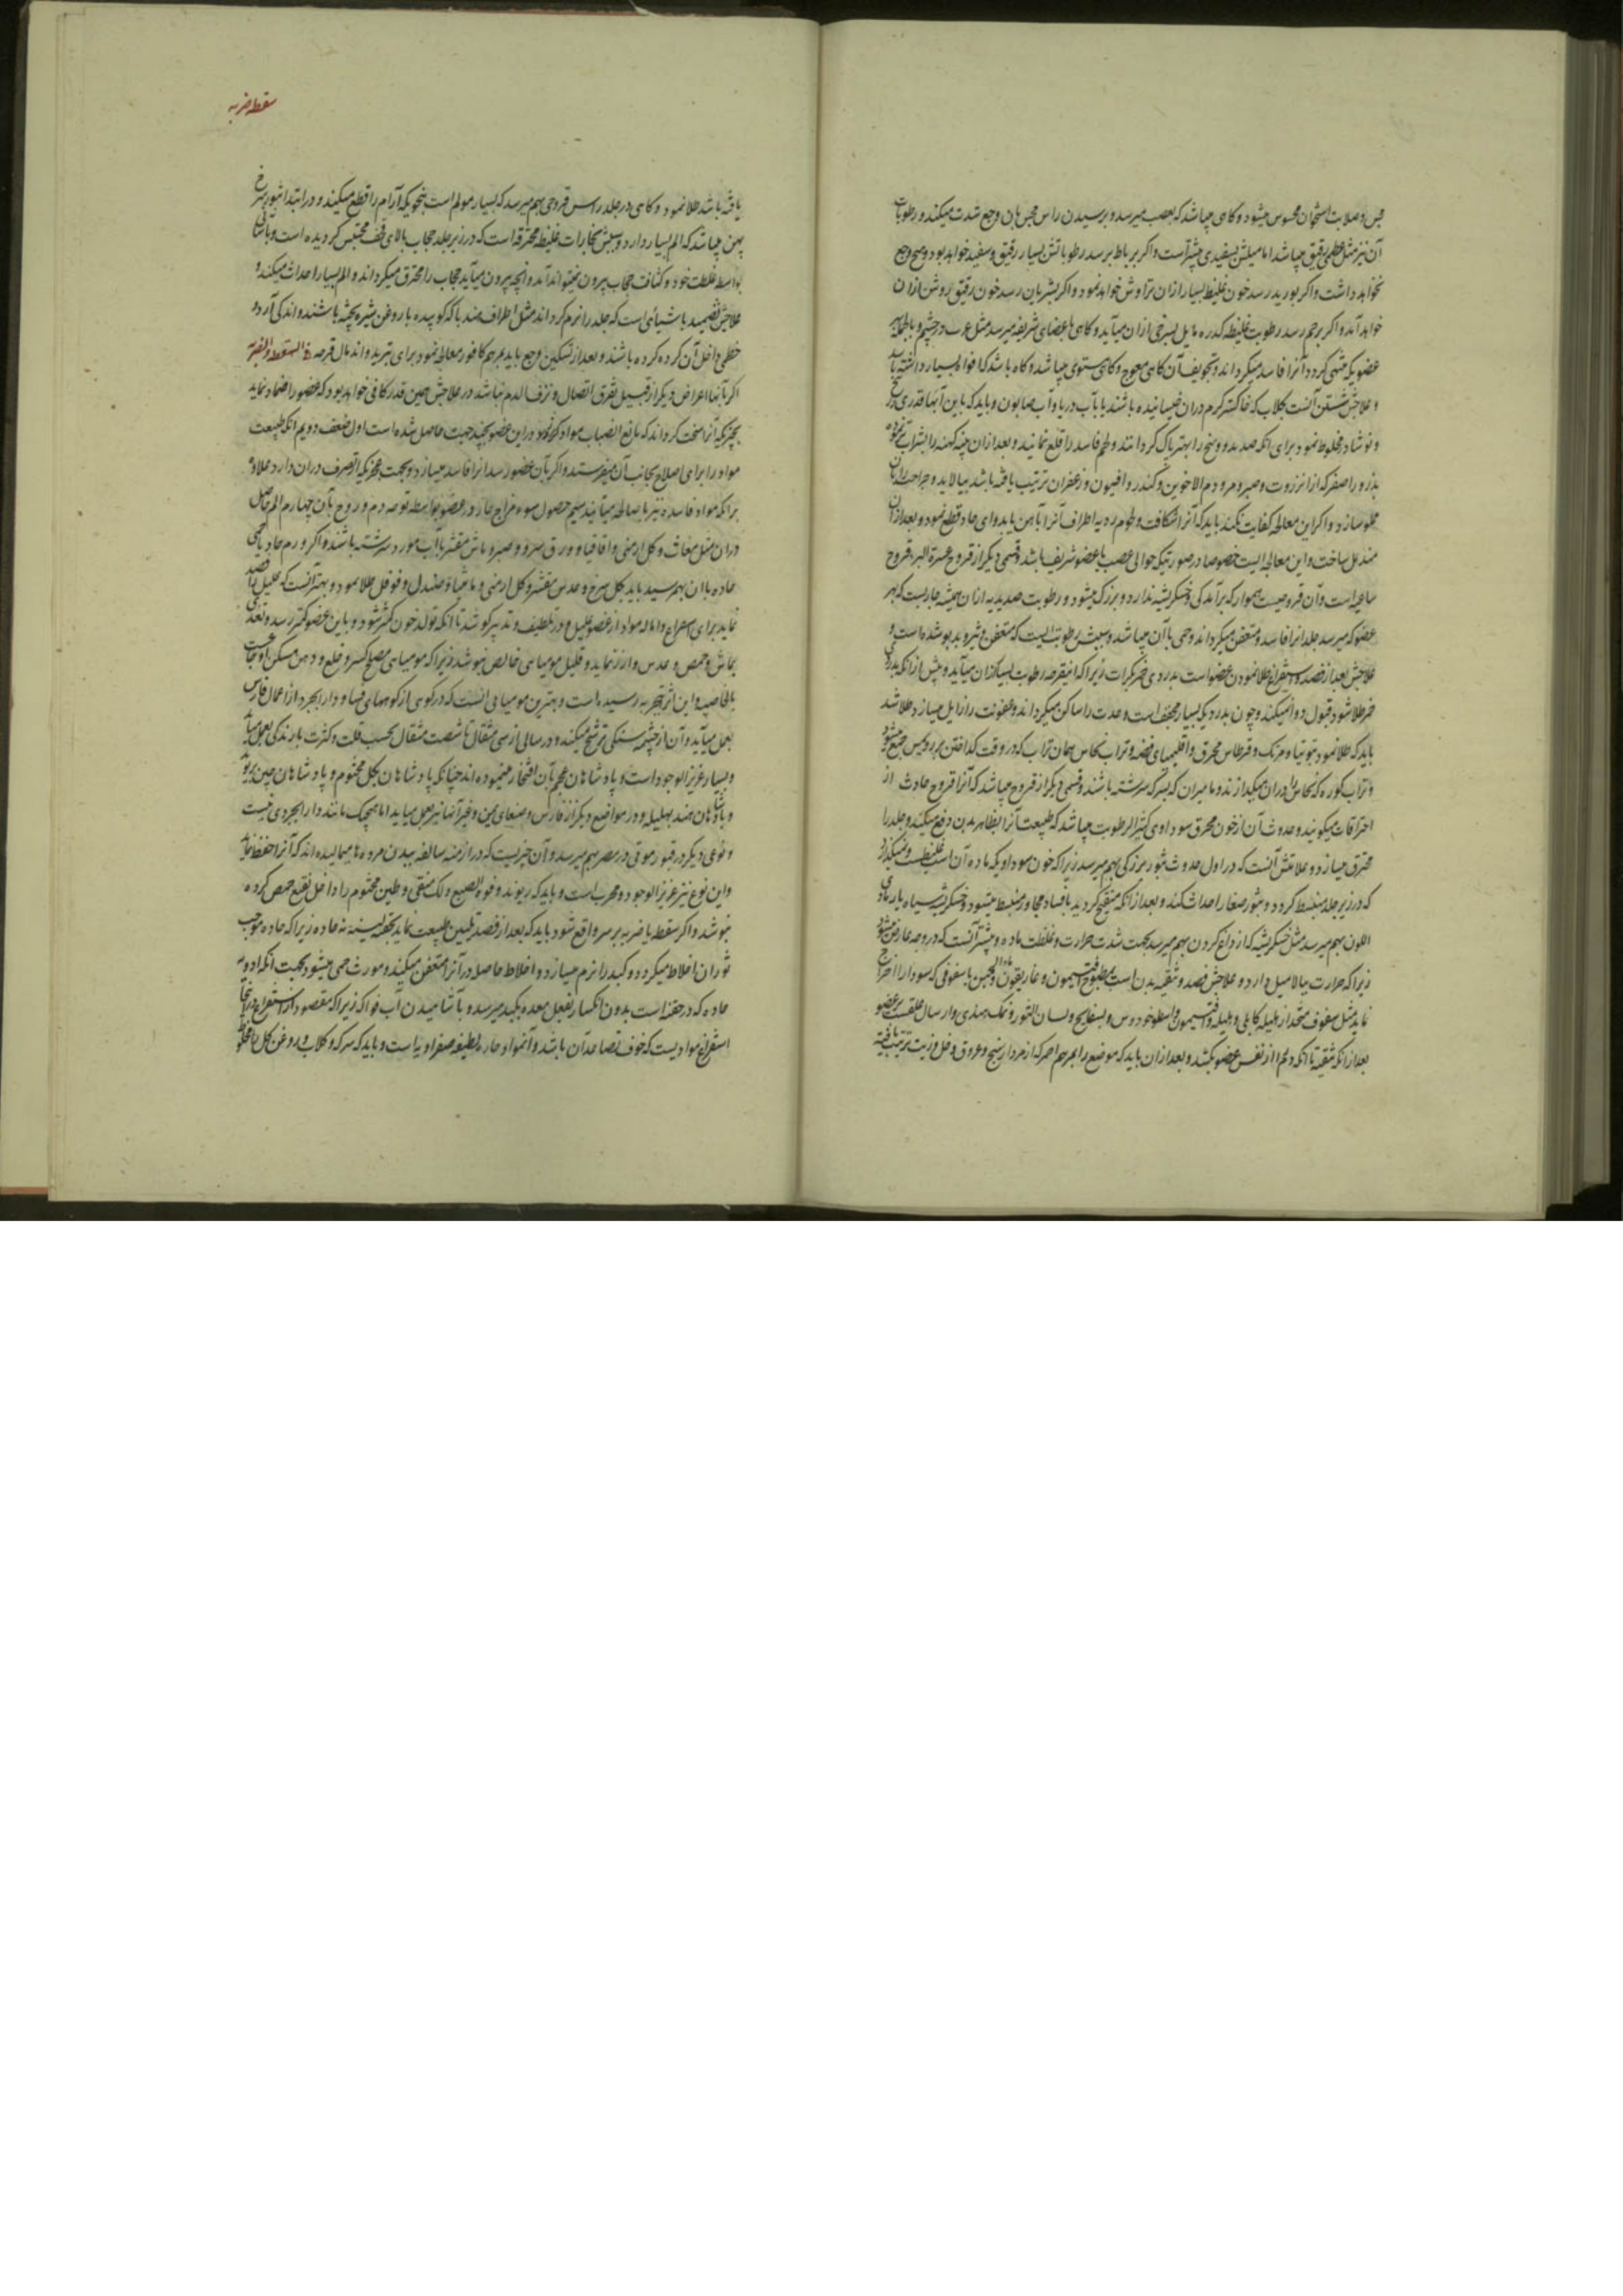 حس و صلابت استخوان محسوس میشود و کاهی میباشد که بعصب میرسد و برسیدن راس مجس بان وجع شدت میکند و رطوبات
آن نیز مثل عظمی رقیق میباشد اما میلش بسفیدی بیشتر است و اکر برباط برسد رطوباتش بسیار رقیق و سفید خواهد بود و هیچ وجع
نخواهد داشت و اکر بورید رسد خون غلیظ بسیار ازان تراوش خواهد نمود و اکر بشریان رسد خون رقیق روشن ازان
خواهد آمد و اکر بلحم رسد رطوبت غلیظ کدره مایل بسرخی ازان میآید و کاهی باعضای شریفه میرسد مثل غرب در چشم و بالجمله بهر
عضویکه منتهی کردد آنرا فاسد میکرداند و تجویف آن کاهی معوج و کاهی مستوی میباشد و کاه باشد که افواه بسیار داشته باشد
و علاجش شستن آنست بکلاب که خاکستر کرم دران خیسانیده باشند یا بآب دریا و آب صابون و باید که باین آبها قدری زرنیخ
و نوشادر مخلوط نمود برای انکه صدید و وسخ را بهتر پاک کردانند و لحم فاسد را قلع نمایند و بعد ازان پنبه کهنه را بشراب تر نموده
بذرور اصفر که از انزروت و صبر و مر و دم الاخوین و کندر و افیون و زعفران ترتیب یافته باشد بیالاید و جراحت را بان
مملو سازد و اکر این معالجه کفایت نکند باید که آنرا شکافت و لحوم ردیه اطراف آنرا بآهن یا بدوای حاد قطع نمود و بعد ازان
مندمل ساخت و این معالجه ایست خصوصا در صورتیکه حوالی عصب یا عضو شریف باشد و قسمی دیکر از قروح عسرة البرء قروح
ساعیه است و آن قروحیست هموار که برآمدکی و خشکریشه ندارد و بزرک میشود و رطوبت صدیدیه ازان همیشه جاریست که بهر
عضو که میرسد جلد انرا فاسد و متعفن میکرداند و حمی با آن میباشد و سببش رطوبتیست که متعفن و شور و بدبو شده است و
علاجش بعد از فصد و استفراغ طلا نمودن عضو است بدردی خمر بکرات زیرا که ازین قرحه رطوبت بسیار ازان میآید و پیش از انکه بدردی
خمر طلا شود قبول دوا نمیکند و چون بدردیکه بسیار مجفف است و حدت را ساکن میکرداند و عفونت را زایل میسازد طلا شد
باید که طلا نمود بتوتیا و مرتک و قرطاس محرق و اقلیمیای فضه و تراب نحاس
و تراب کوره که نحاس را دران میکدازند و مامیران که بسرکه سرشته باشند و قسمی دیکر از قروح میباشد که آنرا قروح حادث از
احتراقات میکویند و حدوث آن از خون محرق سوداوی کثیر الرطوبت میباشد که طبیعت آنرا بظاهر بدن دفع میکند و جلد را
محترق میسازد و علامتش آنست که در اول حدوث بثور بزرکی بهم میرسد زیرا که خون سوداویکه ماده آن است غلیظ است و نمیکذارد
که در زیر جلد منبسط کردد و بثور صغار را احداث کند و بعد از انکه متقیح کردید بافساد مجاور منبسط میشود و خشکریشه سیاه یا رمادی
اللون بهم میرسد مثل خشکریشه که از داغ کردن بهم میرسد بجهت شدت حرارت و غلظت ماده و بیشتر آنست که در وجه عارض میشود
زیرا که حرارت ببالا میل دارد و علاجش فصد و تنقیه بدن است بمطبوخ افتیمون و غاریقون و ماء الجبن با سفوفی که سودا را اخراج
نماید مثل سفوف متخذ از هلیله کابلی و بلیله و افتیمون و اسطوخودوس و بسفایج و لسان الثور و نمک هندی و ارسال علقست بر عضو
بعد از انکه تنقیه تا انکه دم را از نفس عضو بکشد و بعد ازان باید که موضع را بمرهم احمر که از مردارسنج و عروق و خل و زیت ترتیب یافته
سقطه ضربه
یافته باشد طلا نمود و کاهی در جلد راس قروحی بهم میرسد که بسیار مولم است بنحویکه آرام را قطع میکند و در ابتدا بثور سرخ
پهن میباشد که الم بسیار دارد و سببش بخارات غلیظ محترقه است که در زیر جلد حجاب بالای قحف محتبس کردیده است
بواسطه غلظت خود و کثافت حجاب بیرون نمیتواند آمد و انچه بیرون میآید حجاب را محترق میکرداند و الم بسیار احداث میکند و
علاجش تضمید باشیائی است که جلد را نرم کرداند مثل اطراف هندبا که کوبیده با روغن شیره پخته باشند و اندکی آرد و
خطمی داخل آن کرده باشند و بعد از تسکین وجع باید بمرهم کافور معالجه نمود برای تبرید و اندمال قرحه فی السقطه و الضربه
اکر بآنها اعراض دیکر از قبیل تفرق اتصال و نزف الدم نباشد در علاجش همین قدر کافی خواهد بود که عضو را ضماد نماید
بچیزیکه آنرا سخت کرداند که مانع انصباب مواد کردد و دراین عضو بچند جهت حاصل شده است اول ضعف دویم انکه طبیعت
مواد را برای اصلاح بجانب آن میفرستد و اکر بآن عضو رسد انرا فاسد میسازد و بجهت عجزیکه از تصرف دران دارد علاوه
برانکه مواد فاسده نیز با صالحه میآیند سیم حصول سوء مزاج حار در عضو بواسطه توجه دم و روح بآن چهارم الم حاصل
دران مثل مغاث و کل ارمنی و اقاقیا و ورق سرو و صبر و ماش مقشر بآب مورد سرشته باشند و اکر ورم حار یا حمی
حاده باان بهم رسید باید بکل سرخ و عدس مقشر و کل ارمنی و مامیثا و صندل و فوفل طلا نمود و بهتر آنست که علیل را فصد
نماید برای استفراغ و اماله مواد از عضو علیل و در تلطیف و تدبیر کوشد تا انکه تولد خون کمتر شود و باین عضو کمتر رسد و تغذی
بماش و حمص و عدس و ارز نماید و قلیل مومیاهی خالص بنوشد زیرا که مومیاهی مصلح کسر و خلع و وهن و مسکن اوجاعست
بالخاصیه و این اثر بتجربه رسیده است و بهترین مومیاهی انست که در کوهی از کوههای فسا و دارابجرد از اعمال فارس
بعمل میآید و آن از چشمه سنکی ترشح میکند و در سالی از سی مثقال تا شصت مثقال بحسب قلت و کثرت بارندکی بعمل میآید
و بسیار عزیز الوجود است و پادشاهان عجم بآن افتخار مینموده اند چنانکه پادشاهان بکل مختوم و پادشاهان چین بریوند
و پادشاهان هند بهلیله و در مواضع دیکر از فارس و صنعای یمن و غیر آنها نیز بعمل میاید اما هیچیک مانند دارابجردی نیست
و نوعی دیکر در قبور موتی در مصر بهم میرسد و آن چیزیست که در ازمنه سالفه ببدن مرده ها میمالیده اند که آنرا حفظ نماید
و این نوع نیز عزیز الوجود و مجرب است و باید که ریوند و فوة الصبغ و لک منقی و طین مختوم را داخل نقیع حمص کرده
بنوشد و اکر سقطه یا ضربه بر سر واقع شود باید که بعد از فصد تلیین طبیعت نماید بحقنه لینه نه حاده زیرا که حاده موجب
ثوران اخلاط میکردد و کبد را نرم میسازد و اخلاط حاصل در آنرا متعفن میکند و مورث حمی میشود بجهت انکه ادویه
حاده که در حقنه است بدون انکسار بفعل معده بکبد میرسد و بآشامیدن آب فواکه زیرا که مقصود از استفراغ دراینجا
استفراغ موادیست که خوف تصاعد آن باشد و آنمواد حاره لطیفه صفراویه است و باید که سرکه و کلاب و روغن کل را مخلوط